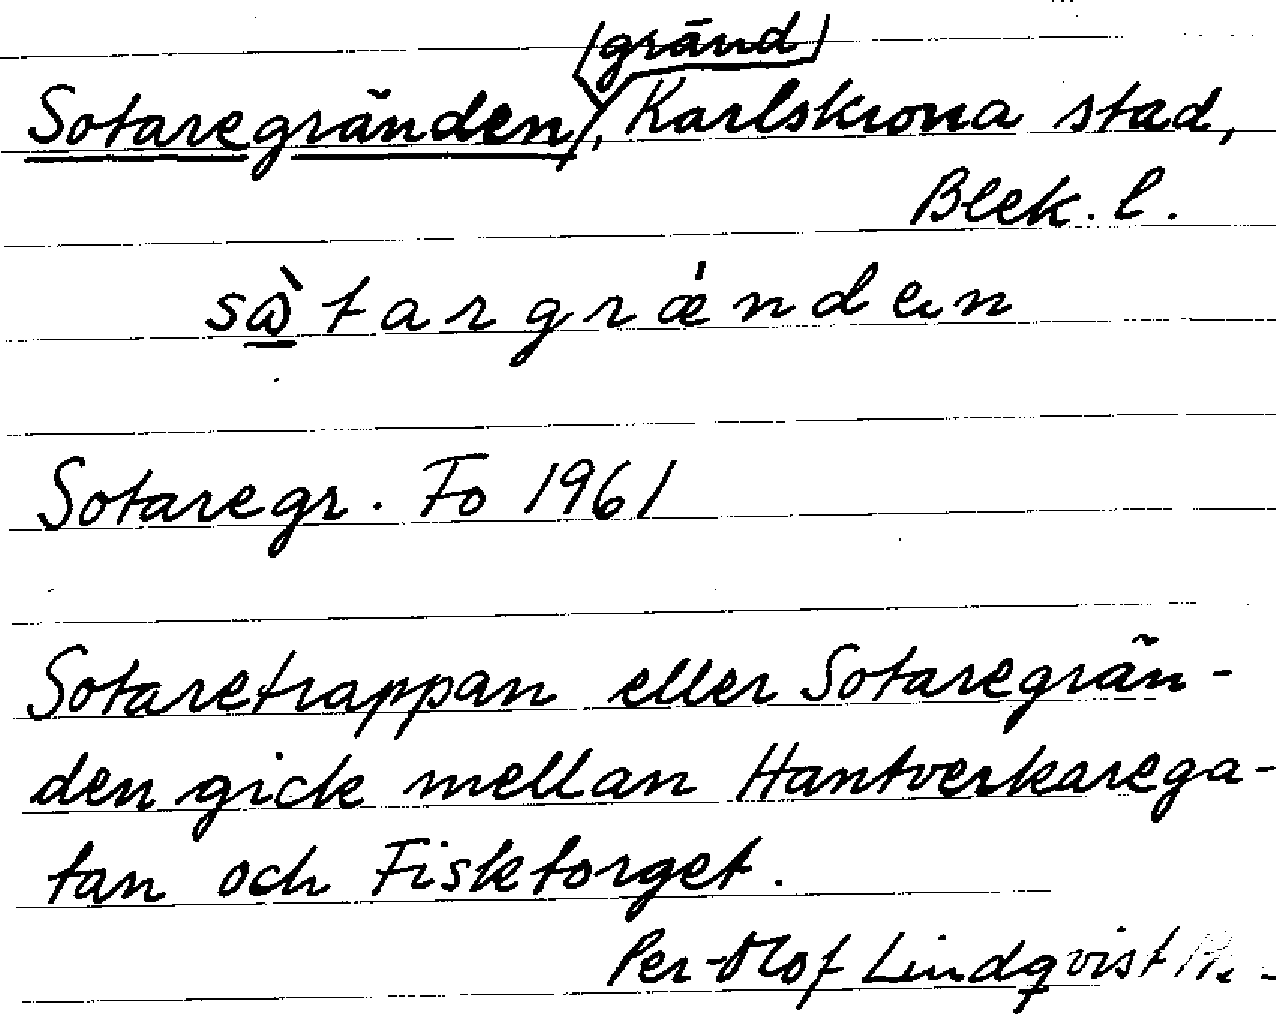 (gränd)
Sotaregränden, Karlskrona stad,
Blek. l.
sὼtargrǽnden
Sotaregr. Fo 1961
Sotaretrappan eller Sotaregrän-
den gick mellan Hantverkarega-
tan och Fisktorget.
Per-Olof Lindqvist